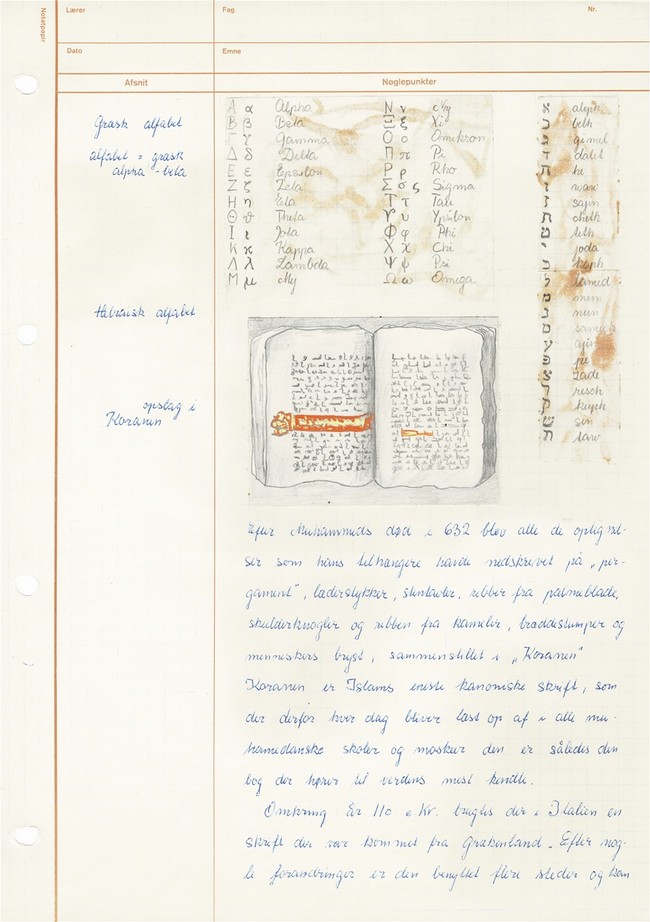 Notatpapir
Lærer
Fag
Nr.
Dato
Emne
Afsnit
Nøglepunkter
Græsk alfabet
alfabet = græsk
alpha - beta
Α α Alpha
Β β Beta
Γ γ Gamma
Δ δ Delta
Ε ε Epsilon
Ζ ζ Zeta
Η η Eta
Θ ϑ Theta
Ι ι Jota
Κ κ Kappa
Λ λ Lambda
Μ μ My
Ν ν Ny
Ξ ξ Xi
Ο ο Omikron
Π π Pi
Ρ ρ Rho
Σ σ ς Sigma
Τ τ Tau
Υ υ Ypsilon
Φ φ Phi
Χ χ Chi
Ψ ψ Psi
Ω ω Omega
א aleph
beth
gimel
dalet
he
waw
sajin
cheth
teth
joda
kaph
lamed
mem
nun
samech
ajin
pe
zade
resch
sin
taw
Hebraisk alfabet
opslag i
Koranen
Efter Muhammeds død i 632 blev alle de optegnel-
ser som hans tilhængere havde nedskrevet på „per-
gament", læderstykker, stentavler, ribber fra palmeblade,
skulderknogler og ribben fra kameler, bræddestumper og
menneskers bryst, sammenstillet i „Koranen"
Koranen er Islams eneste kanoniske skrift, som
der derfor hver dag bliver læst op af i alle mu-
hamedanske skoler og moskeer den er således den
bog der hører til verdens mest kendte.
Omkring År 110 e Kr. brugtes der i Italien en
skrift der var kommet fra Grækenland. Efter nog-
le forandringer er den benyttet flere steder og kan